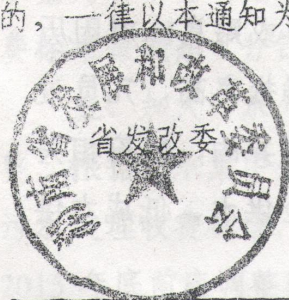 的，一律以本通知为
湖南省发展和改革委员会
省发改委